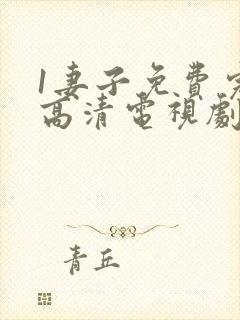 1妻子免费
高清電視劇
青丘